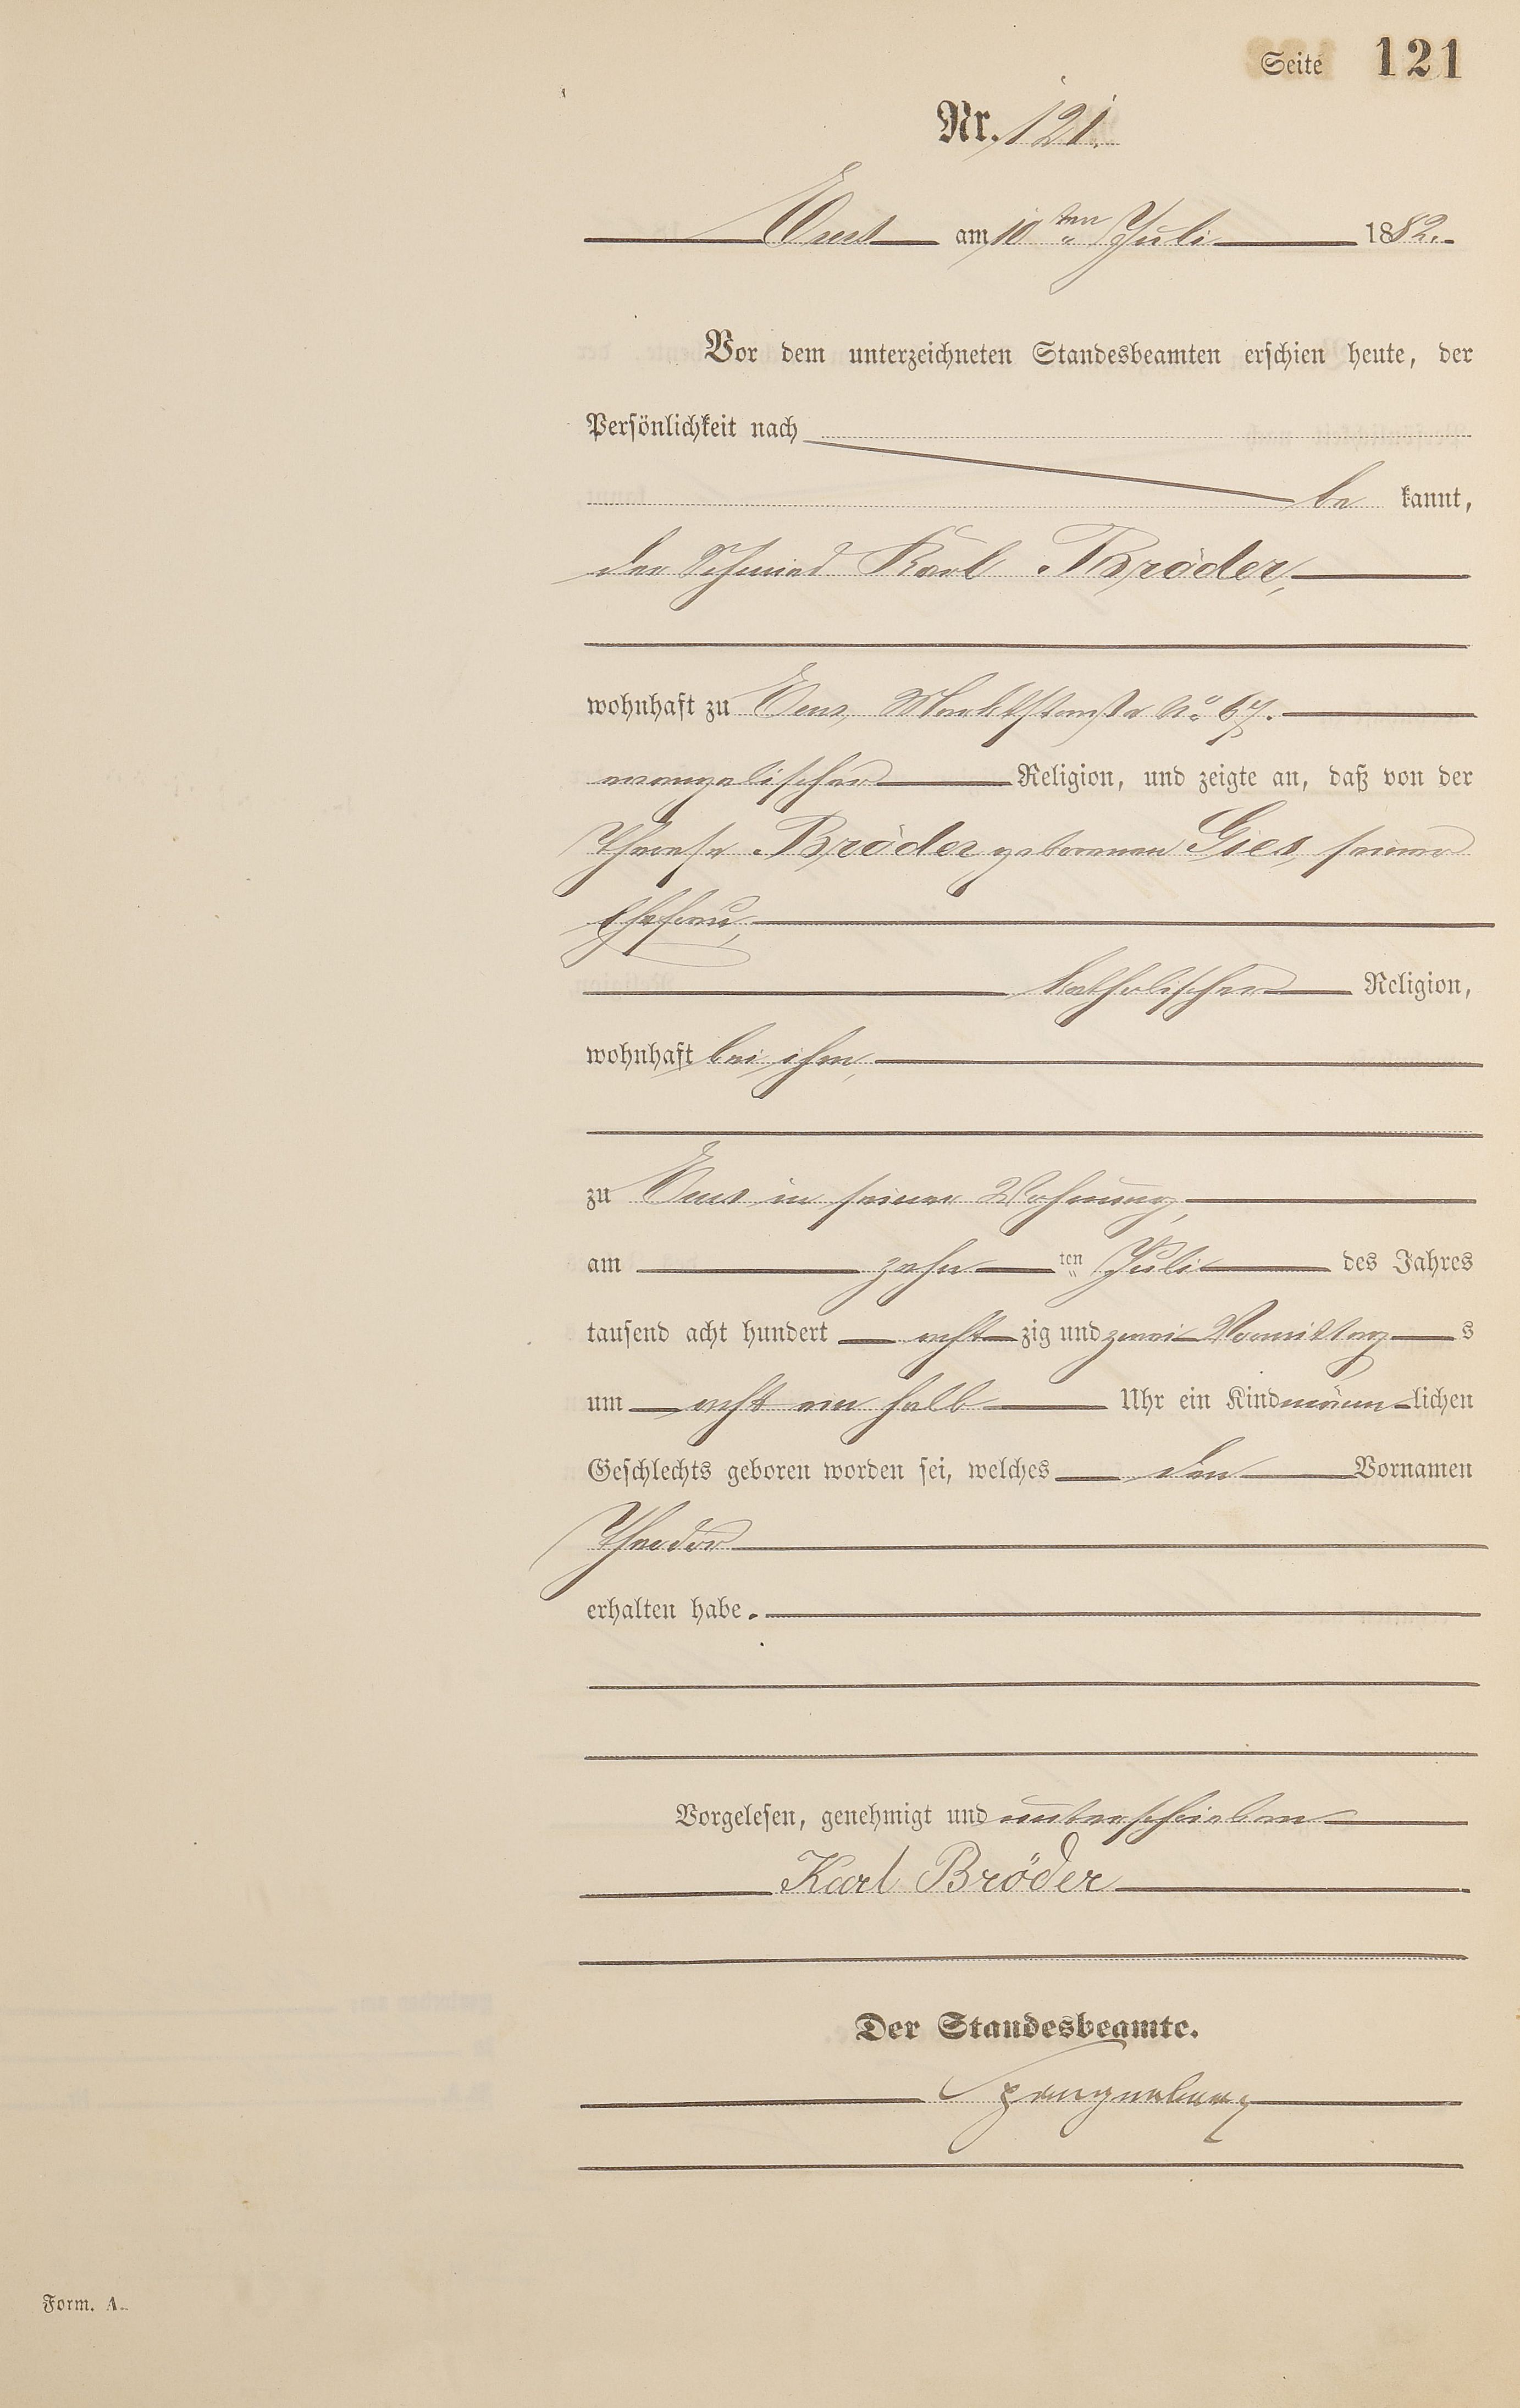 Seite 121
Nr. 121.
Ems am 10ten Juli 1882.
Vor dem unterzeichneten Standesbeamten erschien heute, der
Persönlichkeit nach
be kannt,
der Schmied Karl Bröder,
wohnhaft zu Ems, Marktstraße No 67.
evangelischer Religion, und zeigte an, daß von der
Therese Bröder geborenen Gies, seiner
Ehefrau,
katholischer Religion,
wohnhaft bei ihm,
zu Ems in seiner Wohnung,
am zehn ten Juli des Jahres
tausend acht hundert acht zig und zwei Vormittag s
um acht ein halb Uhr ein Kind männ lichen
Geschlechts geboren worden sei, welches den Vornamen
Theodor
erhalten habe.
Vorgelesen, genehmigt und unterschrieben
Karl Bröder
Der Standesbeamte.
Spangenberg
Form. A.